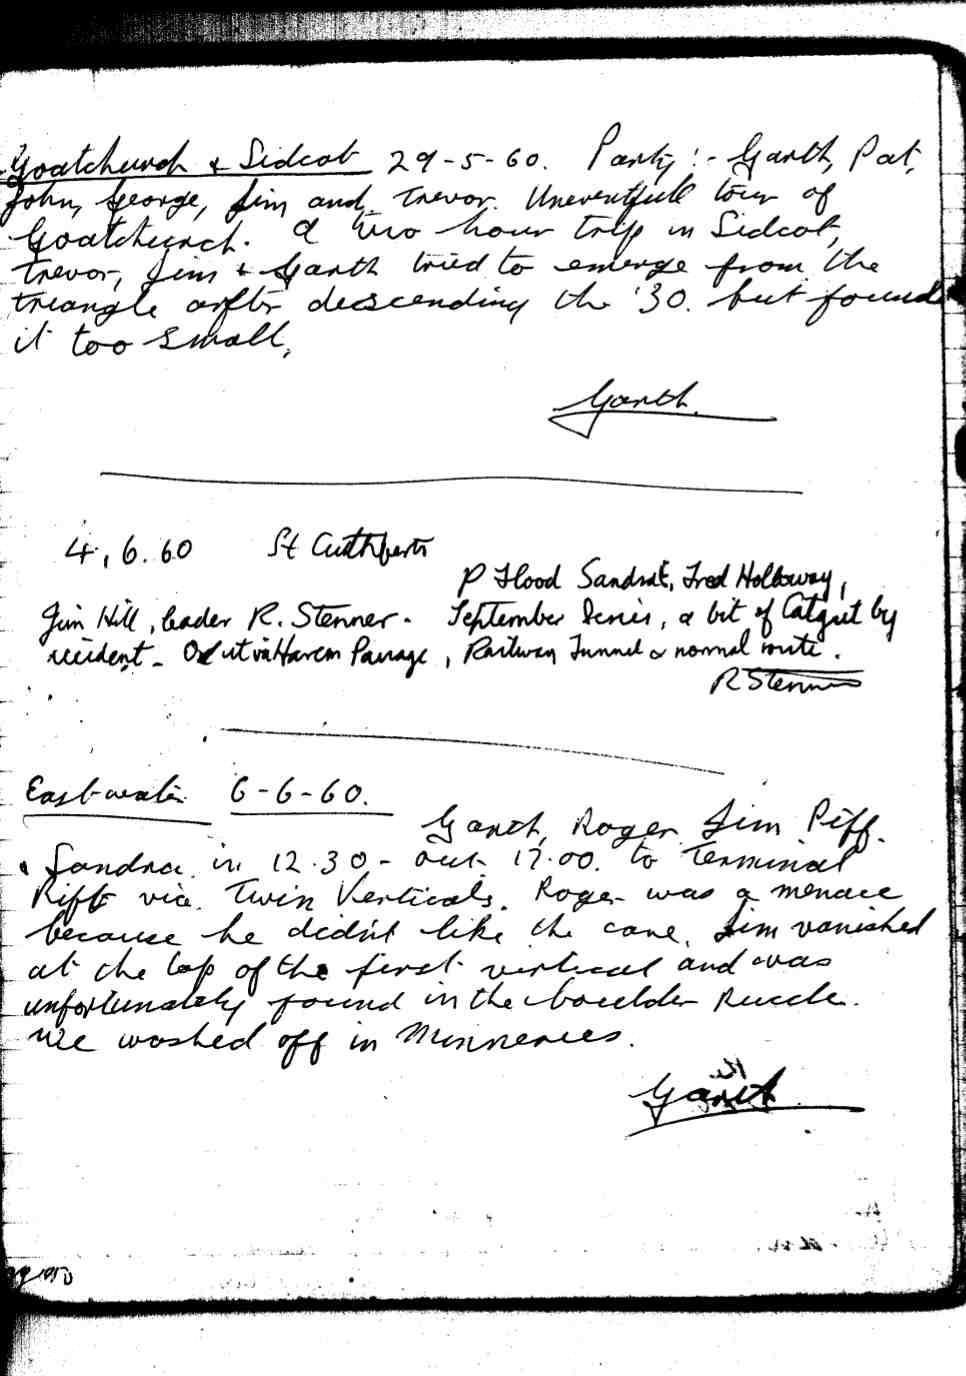 Goatchurch & Sidcot 29-5-60. Party:- Garth, Pat,
John, George, Jim and, Trevor. Uneventfull tour of
Goatchurch. A two hour trip in Sidcot,
Trevor, Jim & Garth tried to emerge from the
triangle after descending the '30. but found
it too small,
Garth.
4.6.60 St Cuthberts
P Flood Sandra, Fred Holloway,
Jim Hill, leader R. Stenner. September Series, a bit of Catgut by
accident - Out via Harem Passage, Railway Tunnel & normal route.
R Stenner
Eastwater 6-6-60.
Garth, Roger Jim Piff.
& Sandra in 12.30 - out 17.00. to Terminal
Rift via. Twin Verticals. Roger was a menace
because he didn't like the cave. Jim vanished
at the top of the first vertical and was
unfortunately found in the boulder Ruckle.
We washed off in Minneries.
Garth